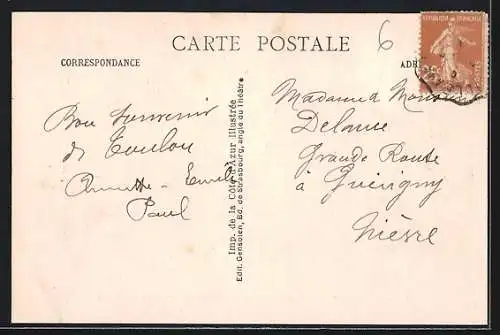 CARTE POSTALE
6
CORRESPONDANCE
RÉPUBLIQUE FRANÇAISE
POSTES
Bon souvenir
de Toulon
Annette - Emile
Paul
Imp. de la Côte d'Azur Illustrée
Edit. Gensolen, Bd. de Strasbourg, angle du Théâtre
Madame & Monsieur
Delaune
Grande Route
à Guérigny
Nièvre